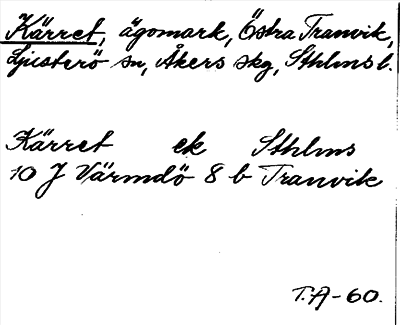 Kärret, ägomark, Östra Tranvik,
Ljusterö sn, Åkers skg, Sthlms l.
Kärret ek Sthlms
10 J Värmdö 8 b Tranvik
T.A-60.